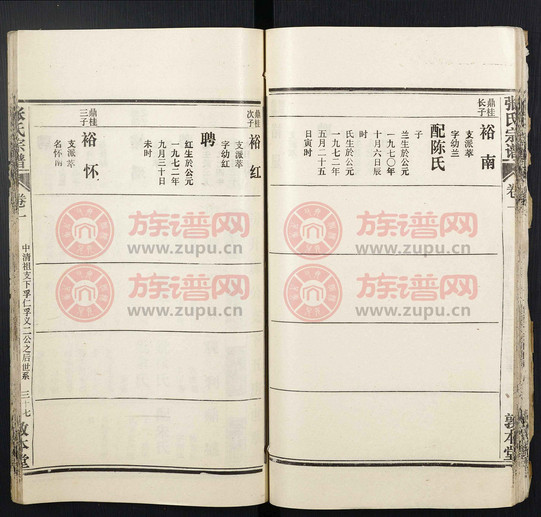 张氏宗谱
卷一
敦本堂
鼎桂
长子
裕南
支派萃
字幼兰
兰生於公元
一九七〇年
十月六日辰
子
配陈氏
氏生於公元
一九七二年
五月二十五
日寅时
鼎桂
次子
裕红
支派萃
字幼红
聘
红生於公元
一九七二年
九月三十日
未时
鼎桂
三子
裕怀
支派萃
张氏宗谱
卷一
中清祖支下孚仁孚义二公之后世系
三
七
敦本堂
族谱网
www.zupu.cn
族谱网
www.zupu.cn
族谱网
www.zupu.cn
族谱网
www.zupu.cn